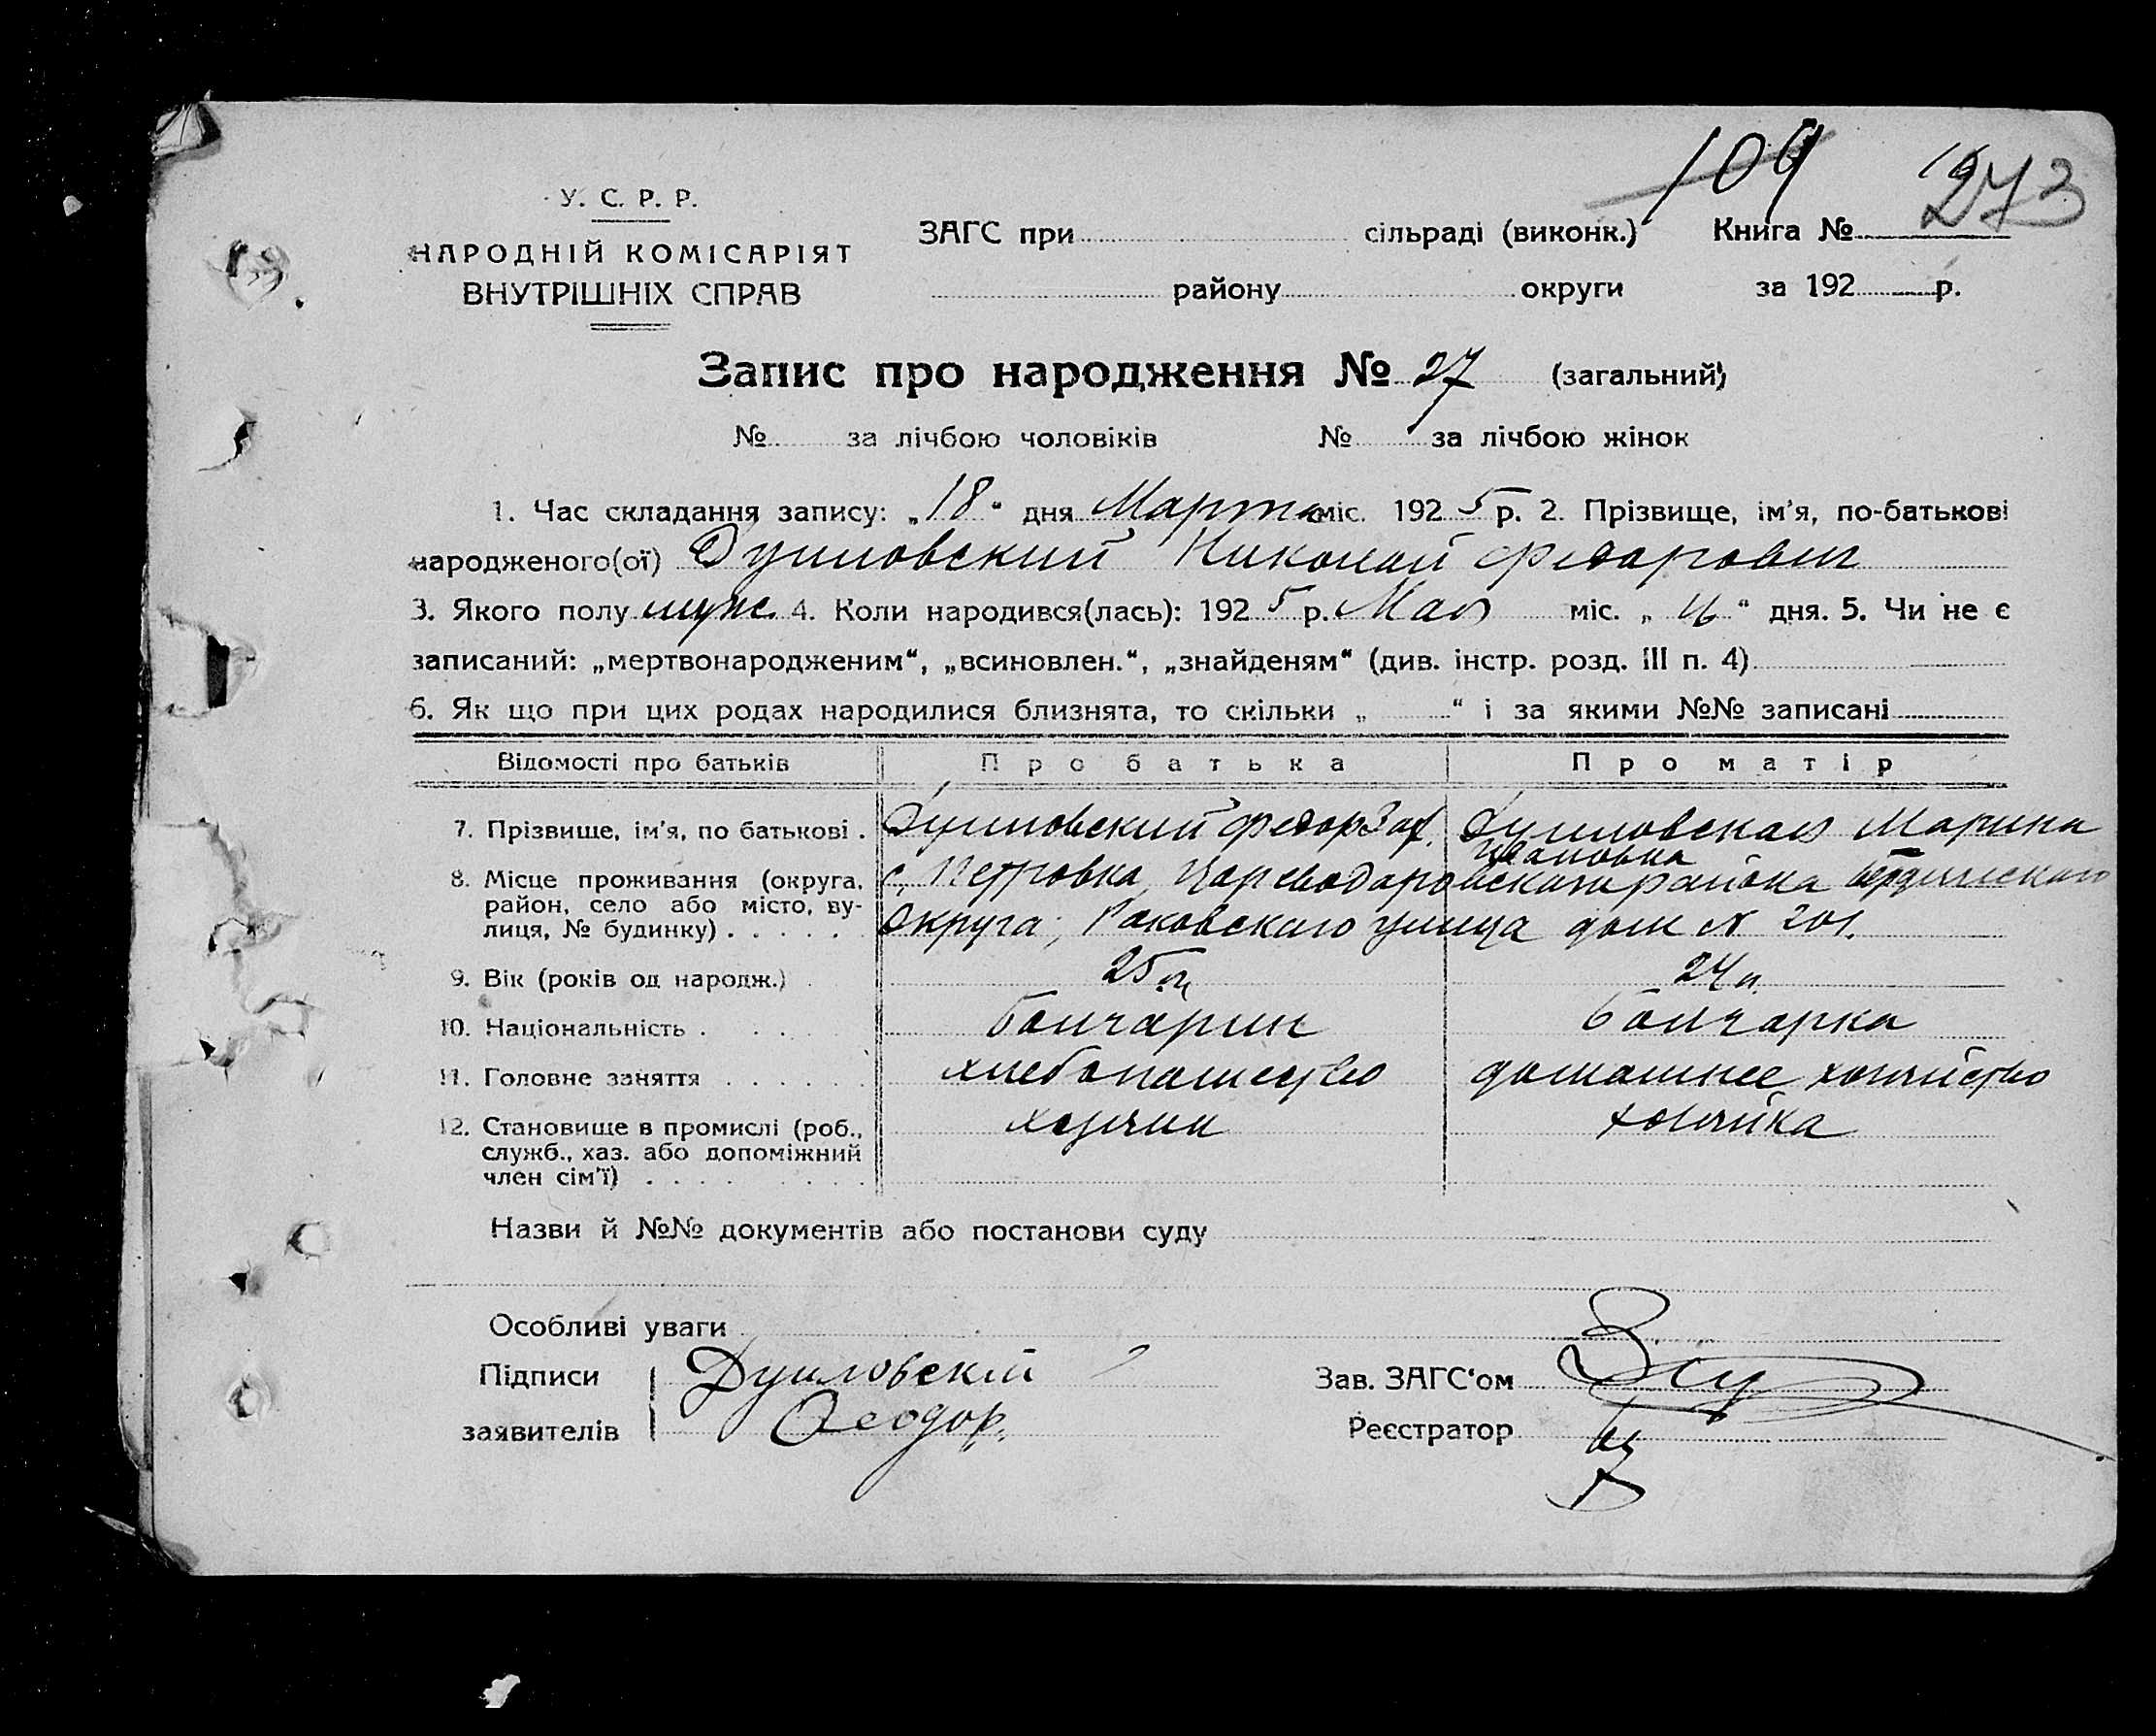 109 273
У. С. Р. Р.
НАРОДНІЙ КОМІСАРІЯТ
ВНУТРІШНІХ СПРАВ
ЗАГС при сільраді (виконк.) Книга №
району округи за 192 р.
Запис про народження № 27 (загальний)
№ за лічбою чоловіків № за лічбою жінок
1. Час складання запису: „18“ дня Марта міс. 1925 р. 2. Прізвище, ім'я, по-батькові
народженого(ої) Душловский Николай Федорович
3. Якого полу муж. 4. Коли народився(лась): 1925 р. Мая міс. „ “ дня. 5. Чи не є
записаний: „мертвонародженим“, „всиновлен.“, „знайденям“ (див. інстр. розд. III п. 4)
6. Як що при цих родах народилися близнята, то скільки „ “ і за якими №№ записані
Відомості про батьків Про батька Про матір
7. Прізвище, ім'я, по батькові . Душловский Федор Зах. Душловская Марина
Ивановна
8. Місце проживання (округа, с. Петровка, Цареводаровского района
район, село або місто, ву-
лиця, № будинку) . . . . . Округа, Раковскаго улица дом № 201.
9. Вік (років од народж.) . 25 л. 24 л.
10. Національність . . . . Болгарин Болгарка
11. Головне заняття . . . . . . хлебопашество домашнее хозяйство
12. Становище в промислі (роб., хозяин хозяйка
служб., хаз. або допоміжний
член сім'ї) . . . . . . . .
Назви й №№ документів або постанови суду
Особливі уваги
Підписи Душловскій
заявителів Феодор.
Зав. ЗАГС'ом
Реєстратор